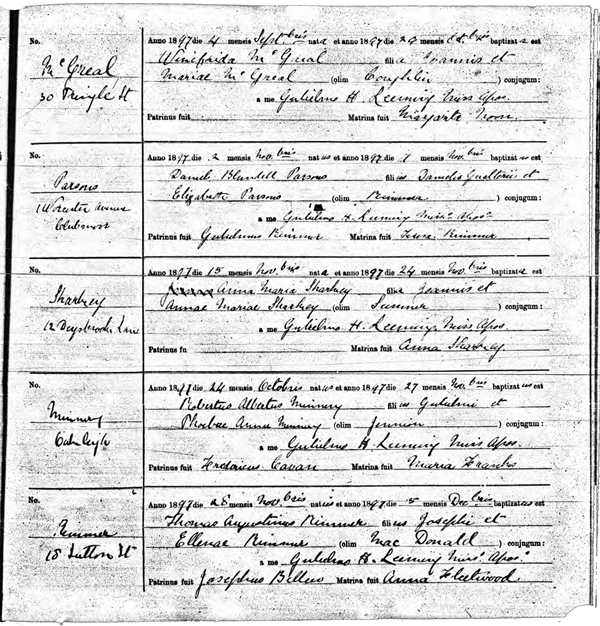 No.
McGreal
30 Pringle St
Anno 1897 die 4 mensis Septbris nata et anno 1897 29 mensis Octbris baptizata est
Winifrida McGreal filia Joannis et
Mariae McGreal (olim Coughlin) conjugum:
a me Gulielmo H. Leeming Miss Apos.
Patrinus fuit Matrina fuit Margarta
No.
Parsons
1 Worcester avenue
Clubmoor
Anno 1897 die 2 mensis Novbris natus et anno 1897 7 mensis Novbris baptizatus est
Daniel Blundell Parsons filius Danielis Gualterii et
Elizabeth Parsons (olim Rimmer) conjugum:
a me Gulielmo H. Leeming Misso Aposo
Patrinus fuit Gulielmus Rimmer Matrina fuit Rimmer
No.
Sharkey
12 Deysbrook Lane
Anno 1897 die 15 mensis Novbris nata et anno 1897 24 mensis Novbris baptizata est
Anna Maria Sharkey filia Joannis et
Annae Mariae Sharkey (olim Sumner) conjugum:
a me Gulielmo H. Leeming Miss Apos.
Patrinus fu Matrina fuit Anna Sharkey
No.
Minnery
Oakleigh
Anno 1897 die 24 mensis Octobris natus et anno 1897 27 mensis Novbris baptizatus est
Robertus Albertus Minnery filius Gulielmi et
Phoebae Annae Minnery (olim) conjugum:
a me Gulielmo H. Leeming Miss Apos.
Patrinus fuit Cavan Matrina fuit Maria Franks
No.
Rimmer
15 Sutton St
Anno 1897 die 28 mensis Novbris natus et anno 1897 5 mensis Decbris baptizatus est
Thomas Augustinus Rimmer filius Josephi et
Ellenae Rimmer (olim Mac Donald) conjugum:
a me Gulielmo H. Leeming Misso Aposo
Patrinus fuit Josephus Bellew Matrina fuit Anna Fleetwood